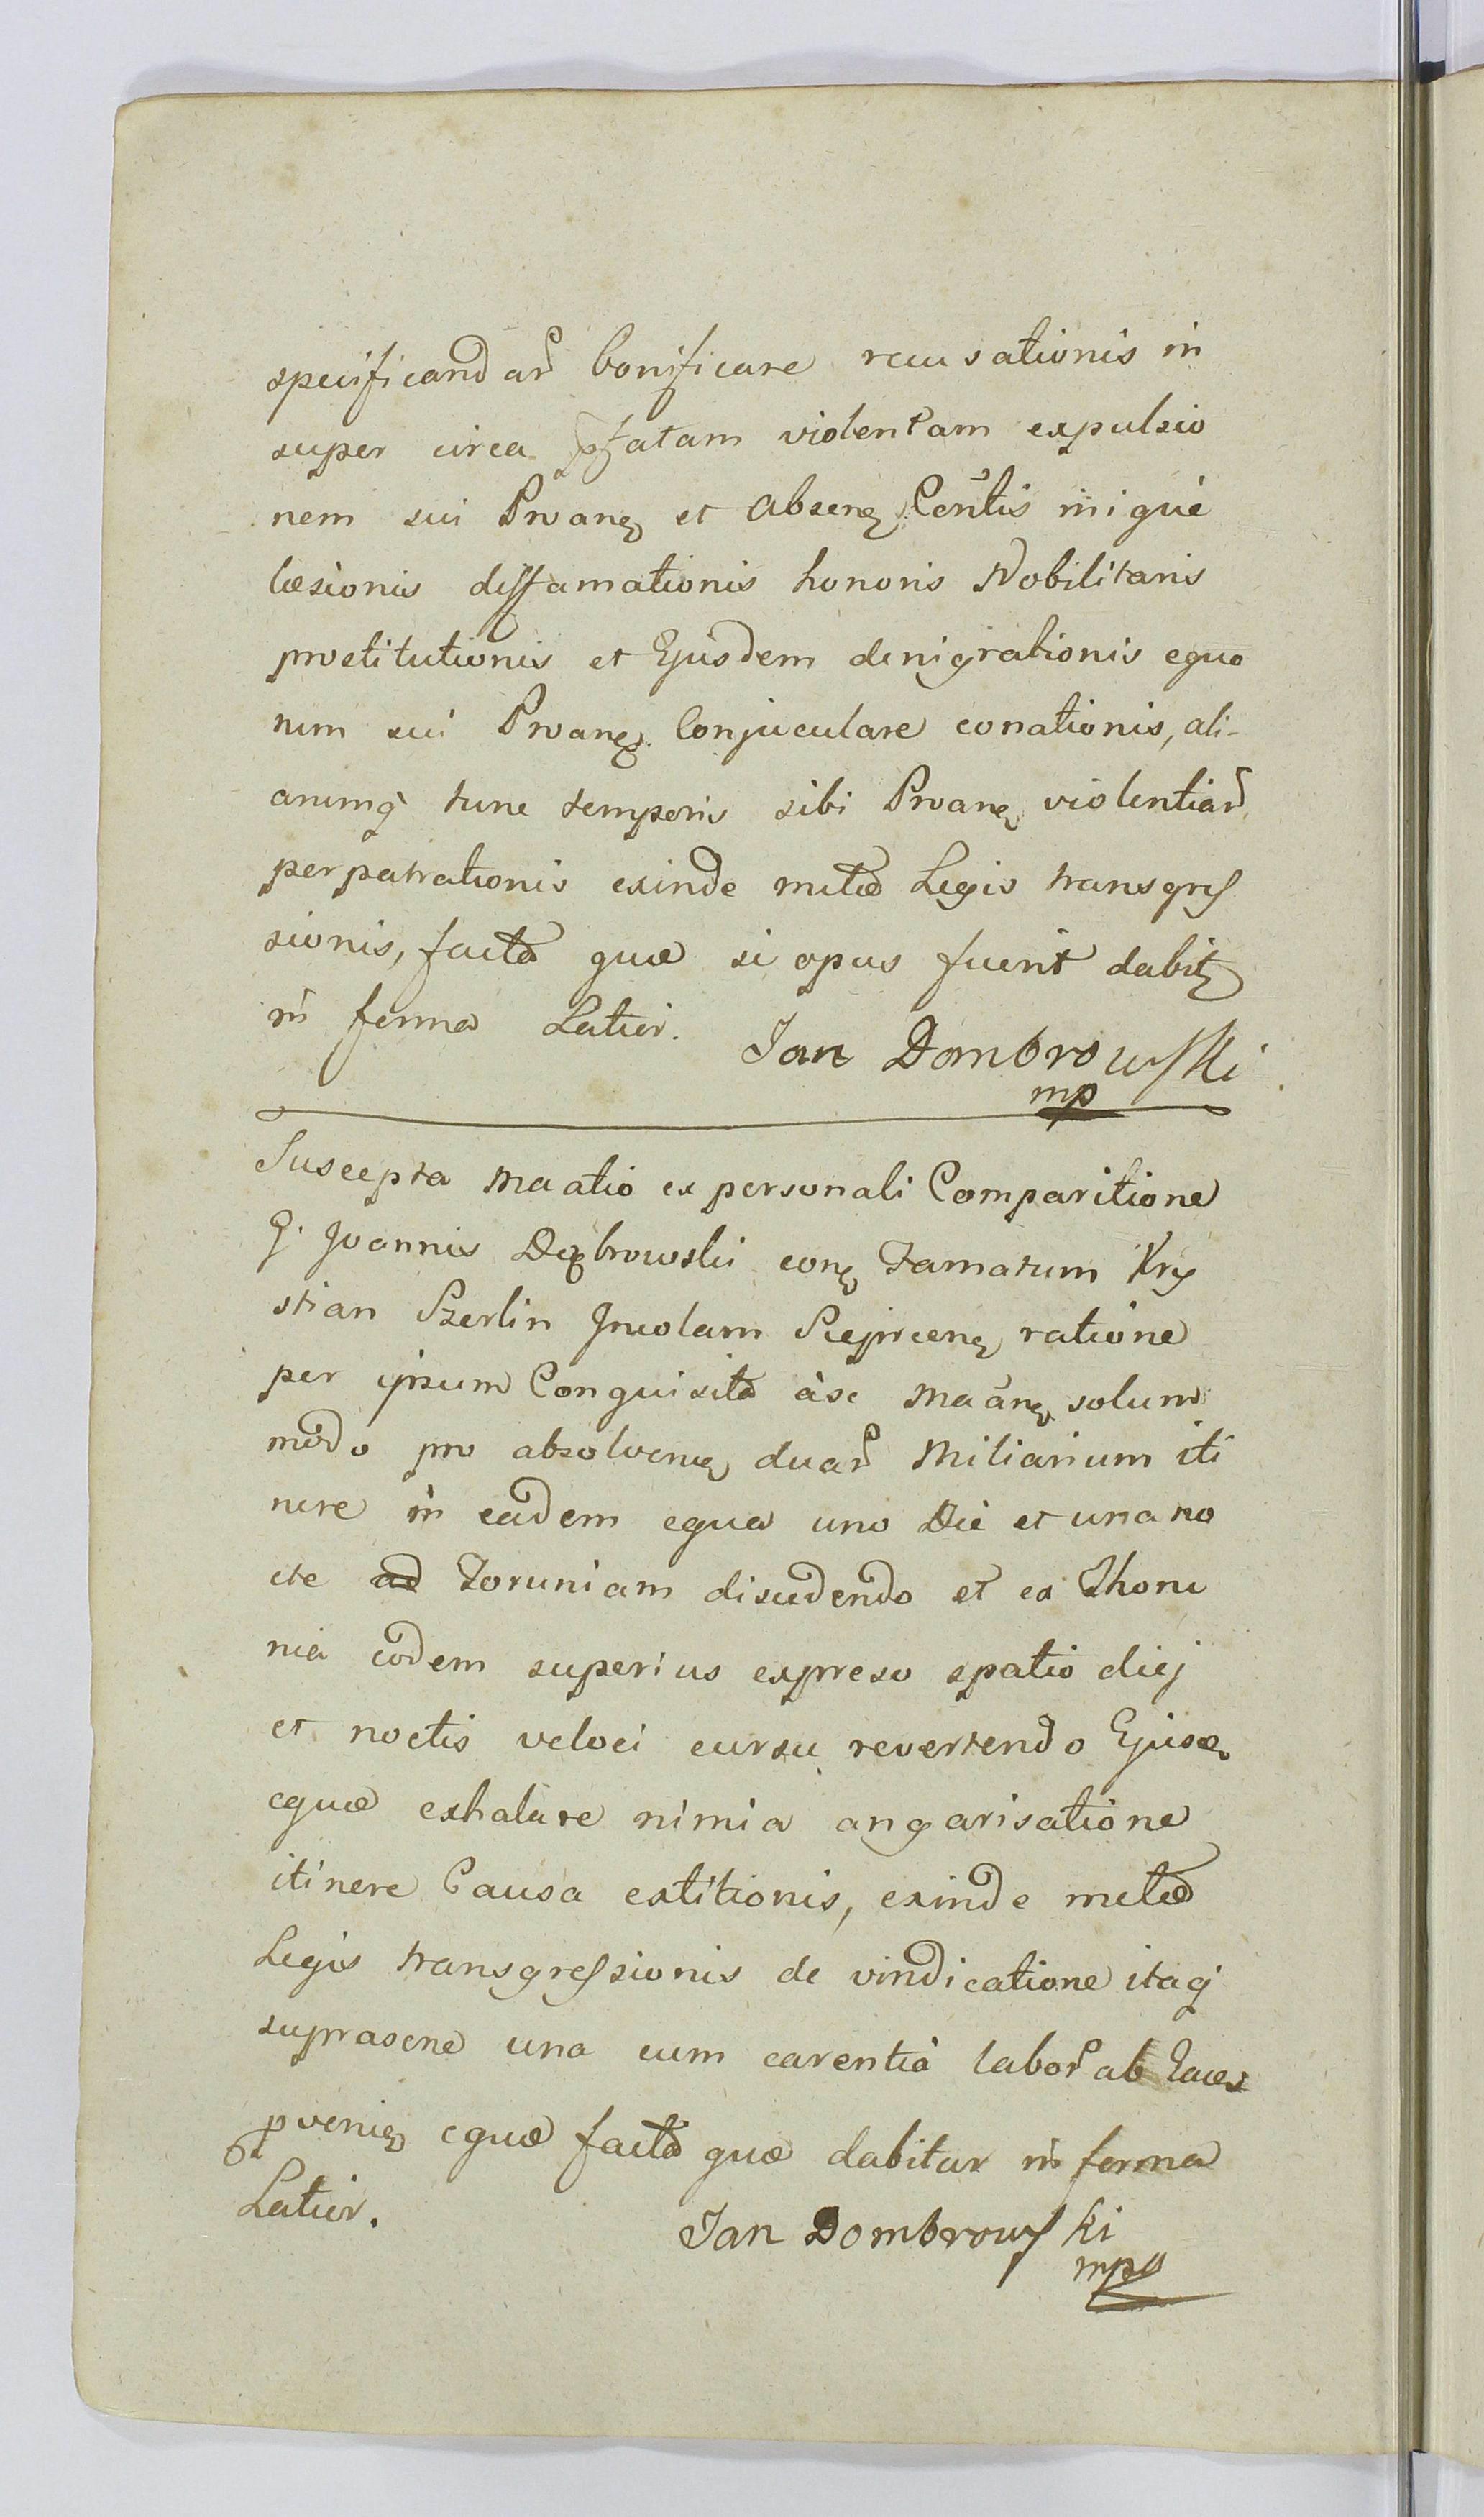 specificandar bonificare recusationis in
super circa pfatam violentam expulsio
nem sui Proanq et absenq Contis iniqué
læsionis diffamationis honoris Nobilitaris
prostitutionis et Ejusdem denigrationis equo
rum sui Proanq Conjuculare conationis, ali-
arumq tunc temporis sibi Proanq violentiar
perpatrationis exinde metæ Legis transgres
sionis, facta quæ si opus fuerit dabitq
in forma Latior. Jan Dombrowski
mp
Suscepta Maatio ex personali Comparitione
G. Joannis Dąbrowski conq Famatum Kry
stian Szerlin Incolam Pieprcenq ratione
per ipsum Conquisita àse Maãnq solum
modo pro absolvenq duar Miliarium iti
nere in eadem equa uno Die et una no
cte ad Toruniam discedendo et ex Thoru
nia eodem superius expreso spatio diej
et noctis veloci cursu revertendo Ejusq
equæ exhalare nimia angarisatione
itinere Causa extitionis, exinde metæ
Legis transgressionis de vindicatione itaq
suprascne una cum carentia labor ab Eaces
pvenienq equæ facta quæ dabitur in forma
Latior. Jan Dombrowski
mpa